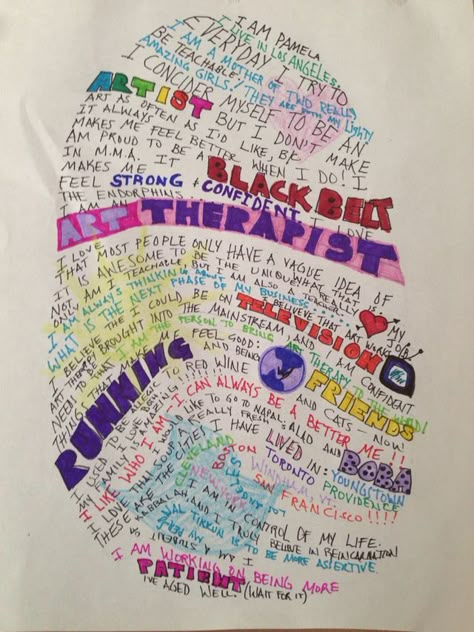 I AM PAMELA
I LIVE IN LOS ANGELES
EVERYDAY I TRY TO
BE TEACHABLE!
I AM A MOTHER OF TWO REALLY
AMAZING GIRLS! THEY ARE BOTH MY LIGHTS
I CONCIDER MYSELF TO BE AN
ARTIST BUT I DON'T MAKE
ART AS OFTEN AS I'D LIKE, BK
IT ALWAYS
MAKES ME FEEL BETTER WHEN I DO! I
AM PROUD TO BE A BLACK BELT
IN M.M.A. IT
MAKES ME
FEEL STRONG + CONFIDENT. I LOVE
THE ENDORPHINS
I AM AN
ART THERAPIST
I LOVE MY JOB!
THAT MOST PEOPLE ONLY HAVE A VAGUE IDEA OF
IT IS AWESOME TO BE THE UNIQUE
NOT AM I TEACHABLE, BUT I AM ALSO A TEACHER
I AM ALWAYS THINKING ABOUT
WHAT IS THE NEXT PHASE OF MY BUSINESS
I BELIEVE THAT ART WORKS
I BELIEVE THE I COULD BE ON TELEVISION
ART THERAPY
NEED TO BE BROUGHT INTO THE MAINSTREAM AND I AM CONFIDENT
I AM THE PERSON TO BRING ART THERAPY TO THE WORLD!
THINGS THAT MAKE ME FEEL GOOD:
RUNNING
AND BEING
FRIENDS
RED WINE
AND CATS - NOW!
I USED TO BE ALLERGIC TO
MY FAMILY
I LIKE WHO I AM - I CAN ALWAYS BE A BETTER ME!!
LIKE TO GO TO NAPAL, ALAD AND BORA
REALLY FRESH
I LOVE
I HAVE LIVED IN:
THESE ARE THE CITIES
YOUNGSTOWN
CLEVELAND
BOSTON
TORONTO
PROVIDENCE
NEW YORK
WINDHAM, VT.
SAN FRANCISCO!!!!
I AM IN CONTROL OF MY LIFE.
KABBALAH AND I TRULY BELIEVE IN REINCARNATION
I AM A STUDENT OF
TIKKUN IS TO BE MORE ASSERTIVE.
I AM WORKING ON BEING MORE
PATIENT
I'VE AGED WELL. (WAIT FOR IT)